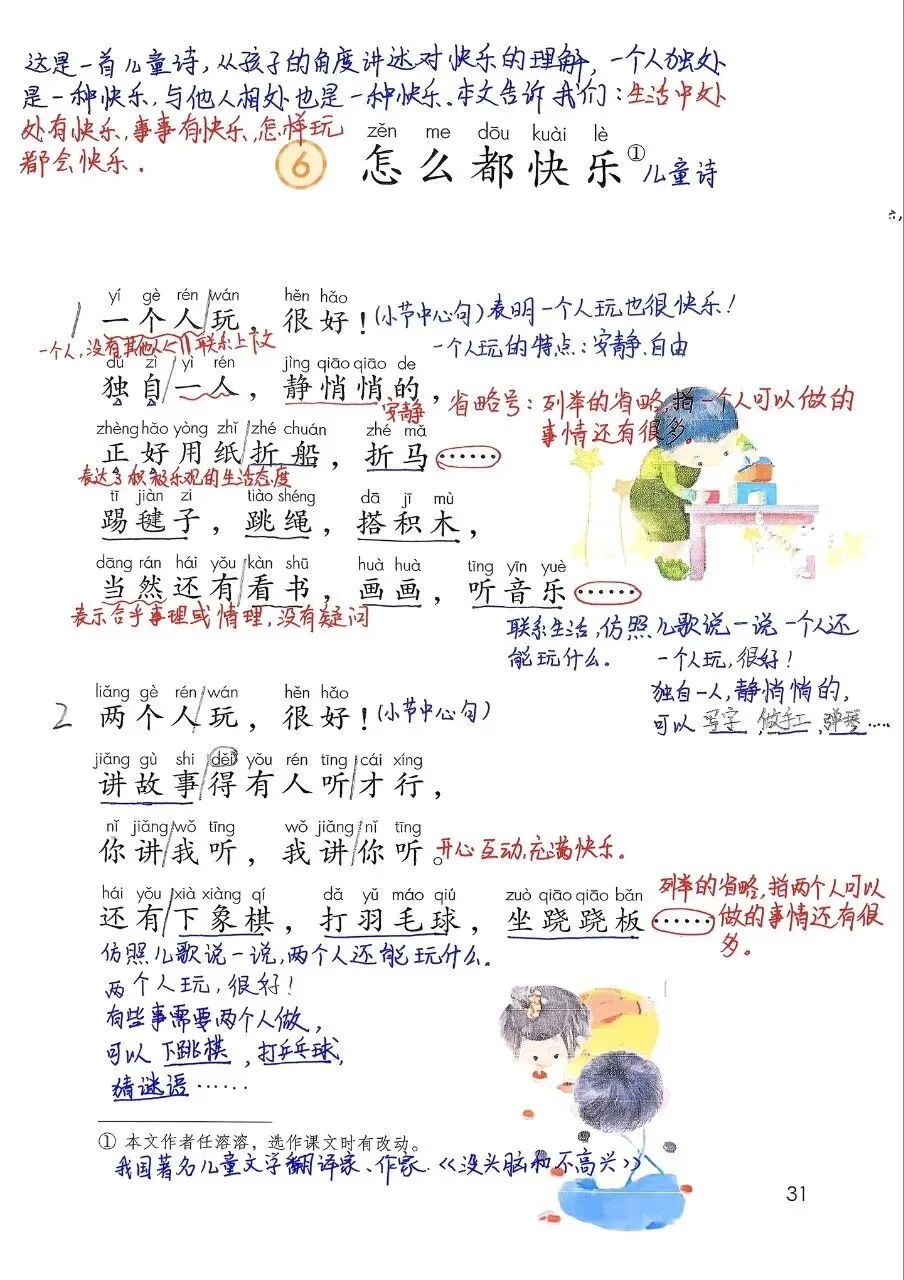 这是一首儿童诗，从孩子的角度讲述对快乐的理解，一个人独处
是一种快乐，与他人相处也是一种快乐。本文告诉我们：生活中处
处有快乐，事事有快乐，怎样玩
都会快乐。
zěn me dōu kuài lè
6 怎么都快乐① 儿童诗
六，
yí gè rén wán hěn hǎo
1 一个人玩，很好！(小节中心句) 表明一个人玩也很快乐！
一个人，没有其他人 联系上下文
一个人玩的特点：安静、自由
dú zì yì rén jìng qiāo qiāo de
独自一人，静悄悄的，
安静
省略号：列举的省略，指一个人可以做的
事情还有很多。
zhèng hǎo yòng zhǐ zhé chuán zhé mǎ
正好用纸折船，折马……
表达了积极乐观的生活态度
tī jiàn zi tiào shéng dā jī mù
踢毽子，跳绳，搭积木，
dāng rán hái yǒu kàn shū huà huà tīng yīn yuè
当然还有看书，画画，听音乐……
表示合乎事理或情理，没有疑问
联系生活，仿照儿歌说一说一个人还
能玩什么。 一个人玩，很好！
独自一人，静悄悄的，
可以写字，做手工，弹琴……
liǎng gè rén wán hěn hǎo
2 两个人玩，很好！(小节中心句)
jiǎng gù shi děi yǒu rén tīng cái xíng
讲故事得有人听才行，
nǐ jiǎng wǒ tīng wǒ jiǎng nǐ tīng
你讲我听，我讲你听。开心互动，充满快乐。
hái yǒu xià xiàng qí dǎ yǔ máo qiú zuò qiāo qiāo bǎn
还有下象棋，打羽毛球，坐跷跷板……
列举的省略，指两个人可以
做的事情还有很
多。
仿照儿歌说一说，两个人还能玩什么。
两个人玩，很好！
有些事需要两个人做，
可以下跳棋，打乒乓球，
猜谜语……
① 本文作者任溶溶，选作课文时有改动。
我国著名儿童文学翻译家、作家.《没头脑和不高兴》
31